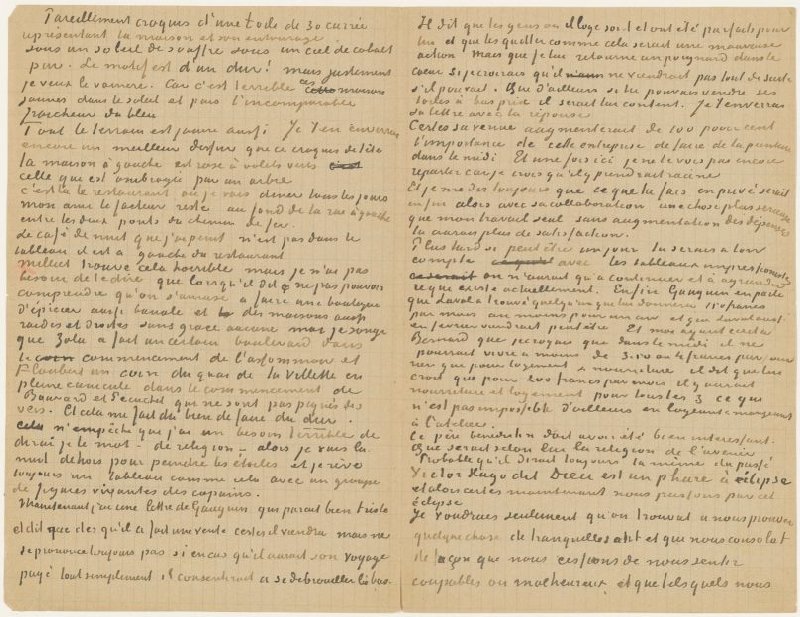 Pareillement croquis d'une toile de 30 carrée
représentant la maison et son entourage
sous un soleil de soufre sous un ciel de cobalt
pur. Le motif est d'un dur! mais justement
je veux le vaincre. Car c'est terrible ces maisons
jaunes dans le soleil et puis l'incomparable
fraicheur du bleu
Tout le terrain est jaune aussi Je t'en enverrai
encore un meilleur dessin que ce croquis de tête
la maison à gauche est rose à volets verts
celle qui est ombragée par un arbre
c'est là le restaurant où je vais diner tous les jours
mon ami le facteur reste au fond de la rue à gauche
entre les deux ponts du chemin de fer.
le café de nuit que j'ai peint n'est pas dans le
tableau il est à gauche du restaurant
Milliet trouve cela horrible mais je n'ai pas
besoin de te dire que lorsqu'il dit ne pas pouvoir
comprendre qu'on s'amuse a faire une boutique
d'épicier aussi banale et des maisons aussi
raides et droites sans grace aucune moi je songe
que Zola a fait un certain boulevard dans
le commencement de l'assommoir et
Flaubert un coin du quai de la Villette en
pleine canicule dans le commencement de
Bouvard et Pecuchet qui ne sont pas piqués des
vers. Et cela me fait du bien de faire du dur.
cela n'empêche que j'ai un besoin terrible de
dirai je le mot – de religion – alors je vais la
nuit dehors pour peindre les étoiles et je rêve
toujours un tableau comme cela avec un groupe
de figures vivantes des copains.
Maintenant j'ai une lettre de Gauguin qui parait bien triste
et dit que dès qu'il a fait une vente certes il viendra mais ne
se prononce toujours pas si en cas qu'il aurait son voyage
payé tout simplement il consentirait a se debrouiller là bas.
Il dit que les gens où il loge sont et ont été parfaits pour
lui et que les quitter comme cela serait une mauvaise
action. mais que je lui retourne un poignard dans le
cœur si je croirais qu'il ne viendrait pas tout de suite
s'il pouvait. Que d'ailleurs si tu pouvais vendre ses
toiles à bas prix il serait lui content. Je t'enverrai
sa lettre avec la réponse
Certes sa venue augmenterait de 100 pour cent
l'importance de cette entreprise de faire de la peinture
dans le midi Et une fois ici je ne le vois pas encore
repartir car je crois qu'il y prendrait racine
Et je me dis toujours que ce que tu fais en privé serait
enfin alors avec sa collaboration une chose plus serieuse
que mon travail seul sans augmentation des dépenses
tu aurais plus de satisfaction.
Plus tard si peut être un jour tu serais a ton
compte avec les tableaux impressionistes
on n'aurait qu'a continuer et à agrandir
ce qui existe actuellement. Enfin Gauguin en parle
que Laval a trouvé quelqu'un qui lui donnera 150 francs
par mois au moins pour un an et que Laval aussi
en fevrier viendrait peut être Et moi ayant ecrit a
Bernard que je croyais que dans le midi il ne
pourrait vivre à moins de 3.50 ou 4 francs par jour
rien que pour logement & nourriture il dit que lui
croit que pour 200 francs par mois il y aurait
nourriture et logement pour tous les 3 ce qui
n'est pas impossible d'ailleurs en logeant & mangeant
à l'atelier.
Le père benedictin doit avoir été bien interessant.
Que serait selon lui la religion de l'avenir
Probable qu'il dirait toujours la même du passé
Victor Hugo dit Dieu est un phare à eclipse
et alors certes maintenant nous passons par cet
éclipse
Je voudrais seulement qu'on trouvat a nous prouver
quelque chose de tranquillisant et qui nous consolat
de façon que nous cessions de nous sentir
coupables ou malheureux et que tels quels nous